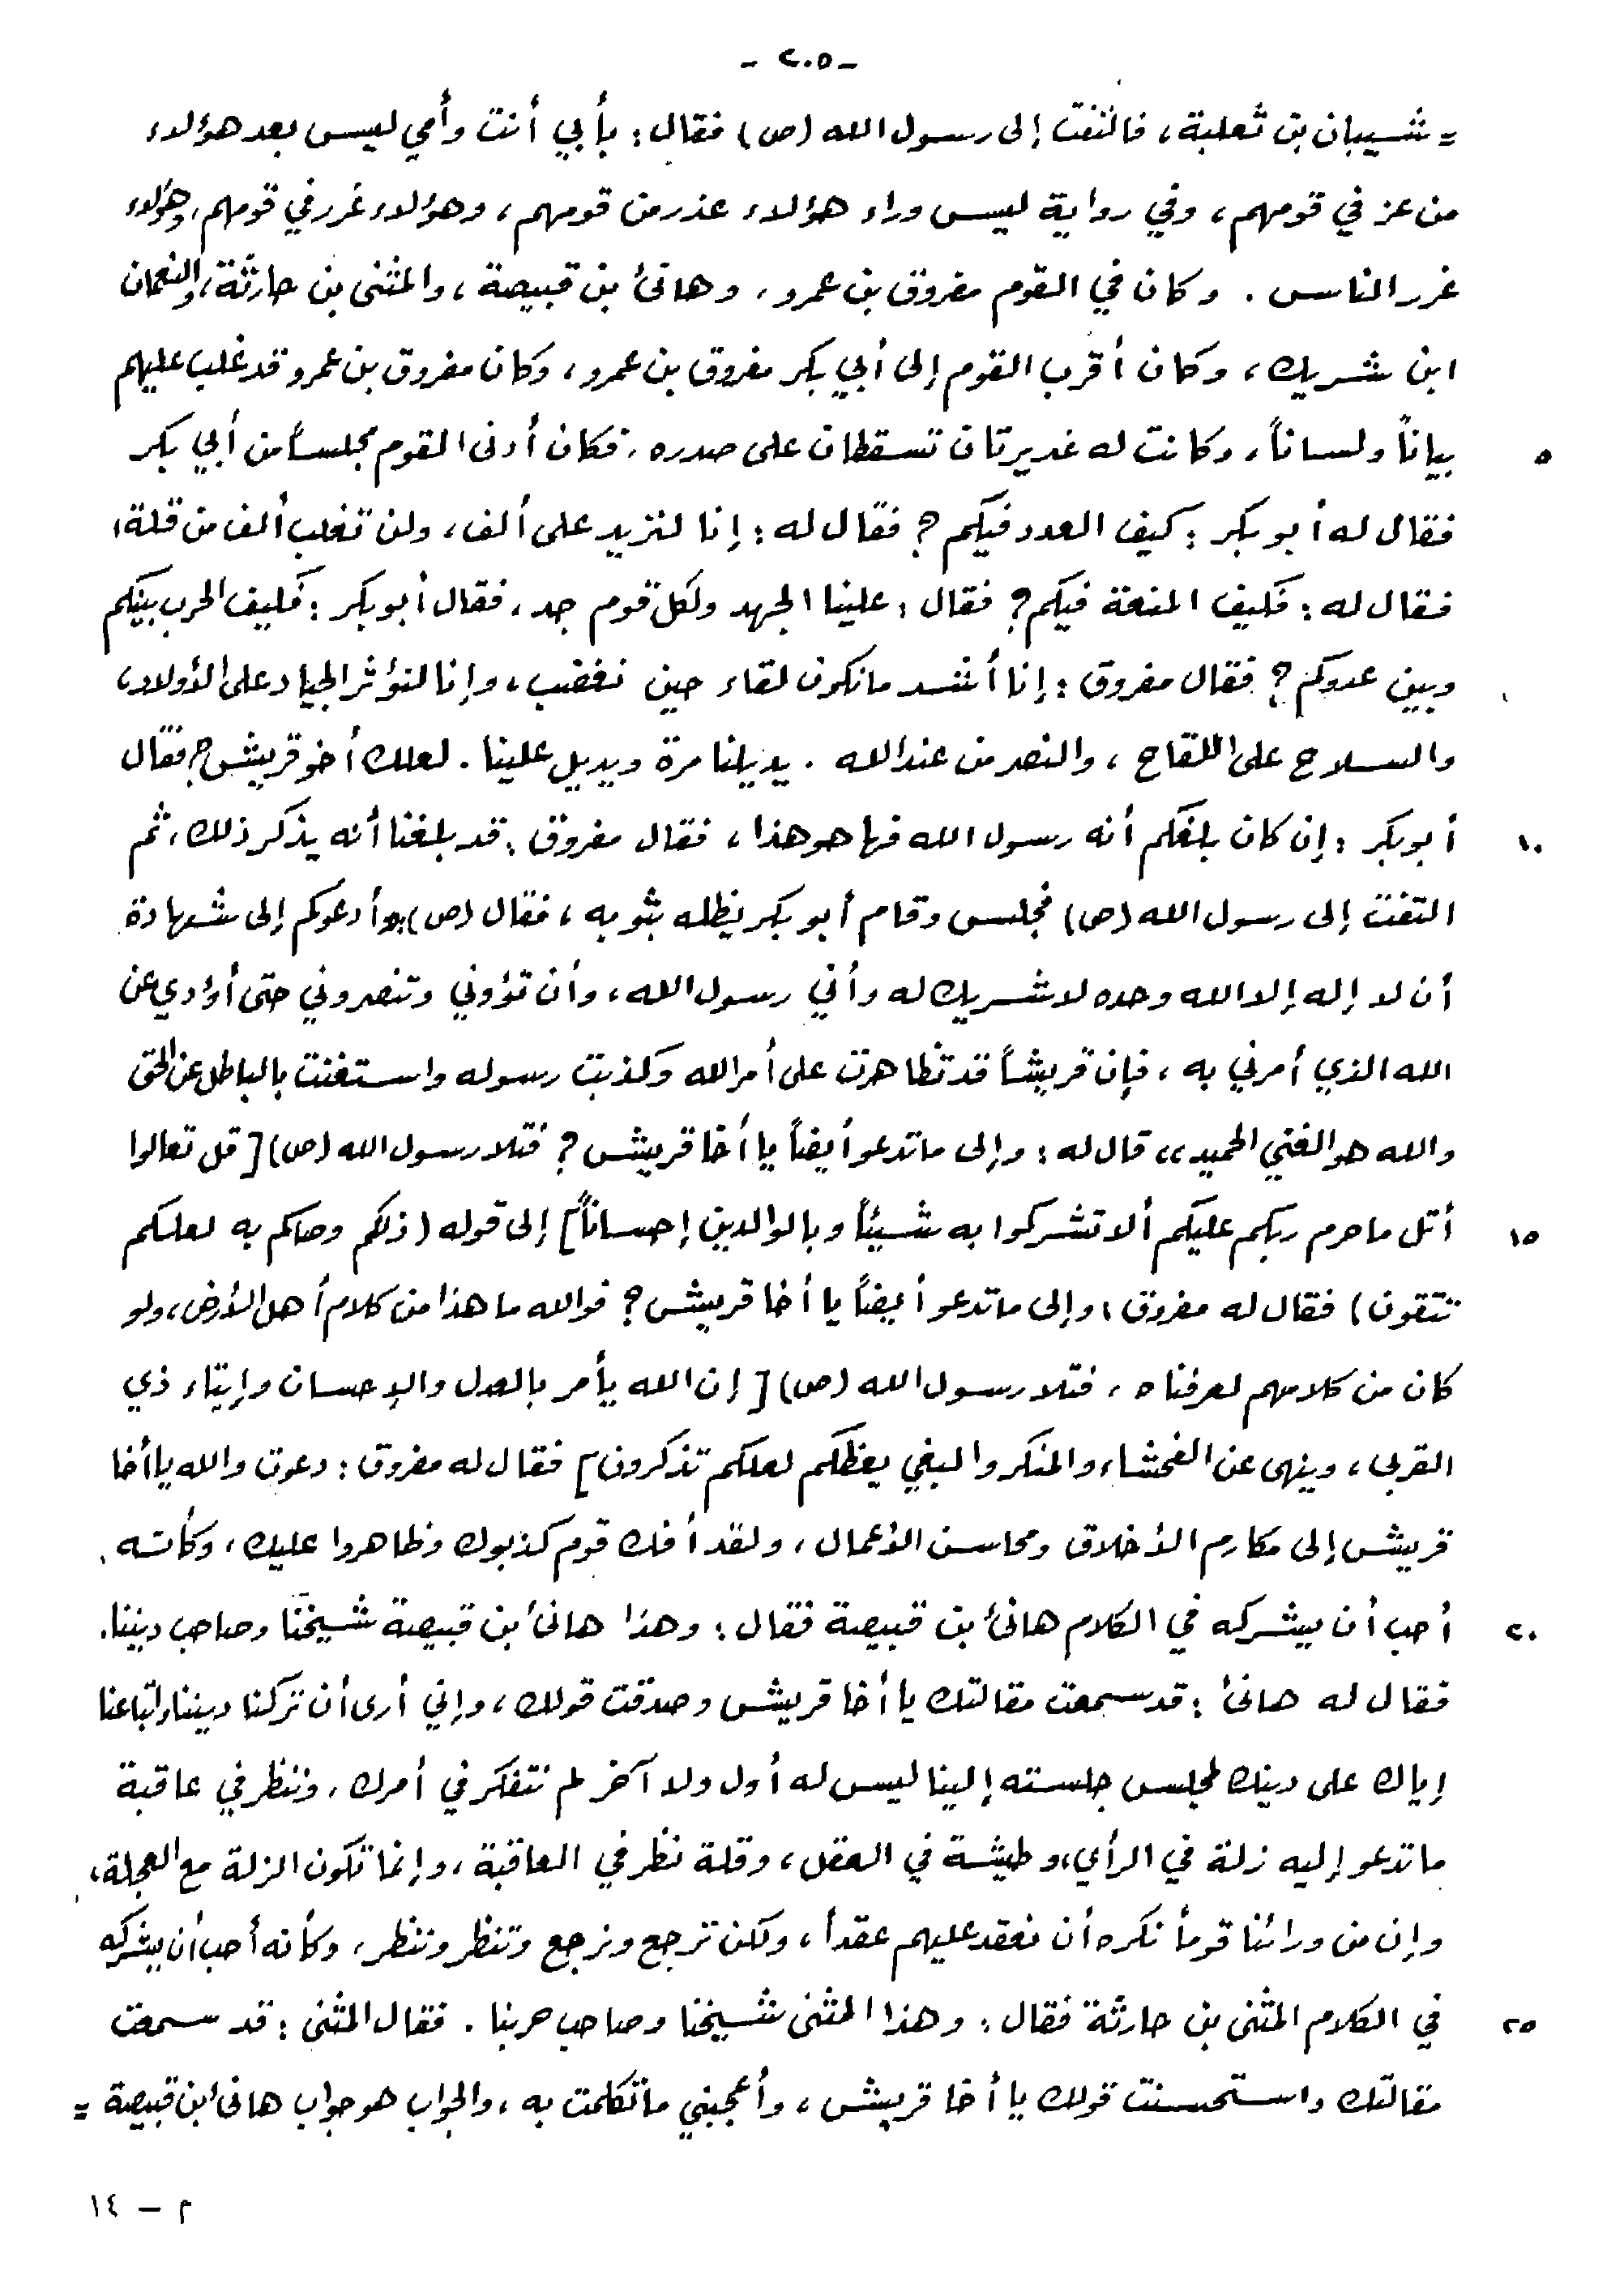 - ٢٠٥ -
= شيبان بن ثعلبة، فالتفت إلى رسول الله (ص) فقال: بأبي أنت وأمي ليس بعد هؤلاء
من عز في قومهم، وفي رواية ليس وراء هؤلاء عذر من قومهم، وهؤلاء غرر في قومهم، وهؤلاء
غرر الناس. وكان في القوم مفروق بن عمرو، وهانئ بن قبيصة، والمثنى بن حارثة، والنعمان
ابن شريك، وكان أقرب القوم إلى أبي بكر مفروق بن عمرو، وكان مفروق بن عمرو قد غلب عليهم
بياناً ولساناً، وكانت له غديرتان تسقطان على صدره. فكان أدنى القوم مجلساً من أبي بكر ٥
فقال له أبو بكر: كيف العدد فيكم؟ فقال له: إنا لنزيد على ألف، ولن تغلب ألف من قلة،
فقال له: فكيف المنعة فيكم؟ فقال: علينا الجهد ولكل قوم جد، فقال أبو بكر: فكيف الحرب بينكم
وبين عدوكم؟ فقال مفروق: إنا أشد ما نكون لقاء حين نغضب، وإنا لنؤثر الجياد على الأولاد،
والسلاح على اللقاح، والنصر من عند الله. يديلنا مرة ويديل علينا. لعلك أخو قريش؟ فقال
أبو بكر: إن كان بلغكم أنه رسول الله فها هو هذا، فقال مفروق: قد بلغنا أنه يذكر ذلك، ثم ١٠
التفت إلى رسول الله (ص) فجلس وقام أبو بكر يظله بثوبه، فقال (ص) «أدعوكم إلى شهادة
أن لا إله إلا الله وحده لا شريك له وأني رسول الله، وأن تؤوني وتنصروني حتى أؤدي عن
الله الذي أمرني به، فإن قريشاً قد تظاهرت على أمر الله وكذبت رسوله واستغنت بالباطل عن الحق
والله هو الغني الحميد»، قال له: وإلى ما تدعو أيضاً يا أخا قريش؟ فتلا رسول الله (ص) [قل تعالوا
أتل ما حرم ربكم عليكم ألا تشركوا به شيئاً وبالوالدين إحساناً] إلى قوله (ذلكم وصاكم به لعلكم ١٥
تتقون) فقال له مفروق: وإلى ما تدعو أيضاً يا أخا قريش؟ فوالله ما هذا من كلام أهل الأرض، ولو
كان من كلامهم لعرفناه، فتلا رسول الله (ص) [إن الله يأمر بالعدل والإحسان وإيتاء ذي
القربى، وينهى عن الفحشاء والمنكر والبغي يعظكم لعلكم تذكرون] فقال له مفروق: دعوت والله يا أخا
قريش إلى مكارم الأخلاق ومحاسن الأعمال، ولقد أفك قوم كذبوك وظاهروا عليك، وكأنه
أحب أن يشركه في الكلام هانئ بن قبيصة فقال: وهذا هانئ بن قبيصة شيخنا وصاحب ديننا. ٢٠
فقال له هانئ: قد سمعت مقالتك يا أخا قريش وصدقت قولك، وإني أرى أن تركنا ديننا واتباعنا
إياك على دينك لمجلس جلسته إلينا ليس له أول ولا آخر لم نتفكر في أمرك، وننظر في عاقبة
ما تدعو إليه زلة في الرأي، وطيشة في العقل، وقلة نظر في العاقبة، وإنما تكون الزلة مع العجلة،
وإن من ورائنا قوماً نكره أن نعقد عليهم عقداً، ولكن ترجع ونرجع وتنظر وننظر، وكأنه أحب أن يشركه
في الكلام المثنى بن حارثة فقال: وهذا المثنى شيخنا وصاحب حربنا. فقال المثنى: قد سمعت ٢٥
مقالتك واستحسنت قولك يا أخا قريش، وأعجبني ما تكلمت به، والجواب هو جواب هانئ ابن قبيصة =
م - ١٤